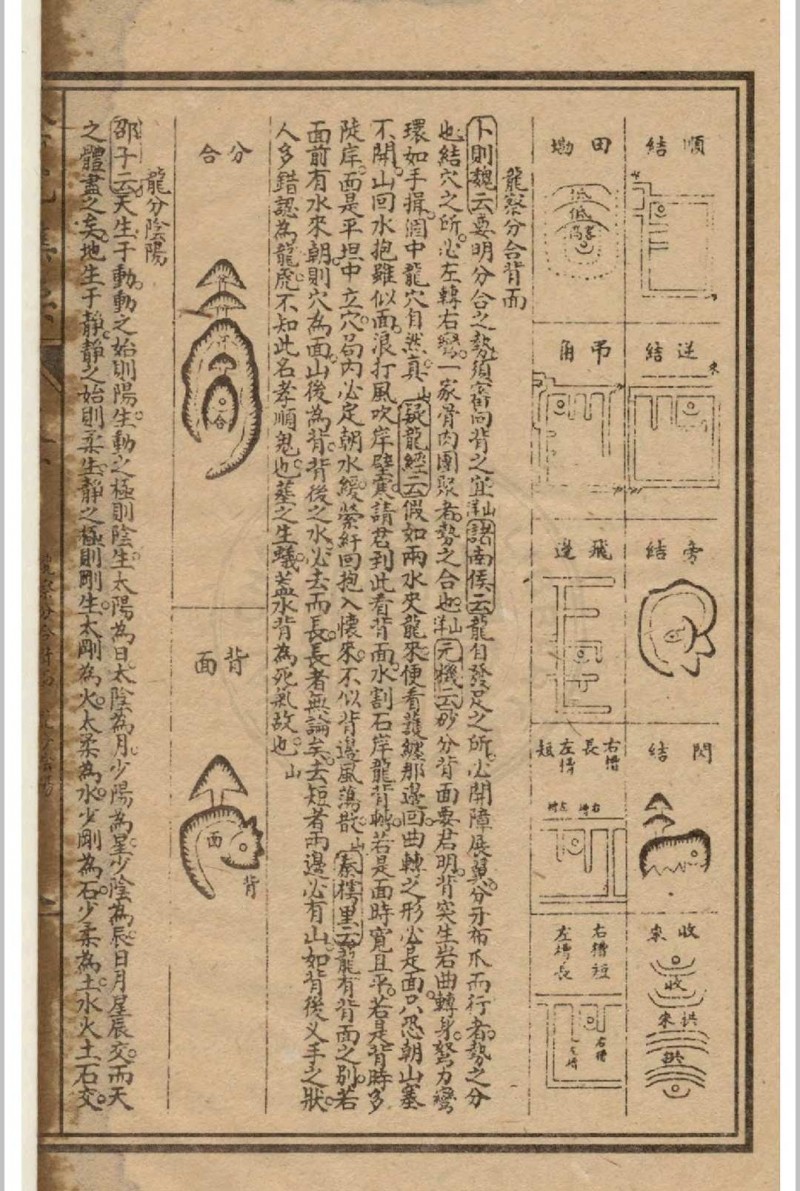 順結
逆結
旁結
閃結
收來
收
洪來
洪
田坳
低
低
吊角
飛邊
右槽長
左槽短
右槽
左槽
右槽短
左槽長
右槽
左槽
龍察分合背面
卜則魏云要明分合之勢須審向背之宜諸南侯云龍自發足之所必開障展翼分牙布爪而行者勢之分
也結穴之所必左轉右彎一家骨肉團聚者勢之合也元機云砂分背面要君明背突生岩曲轉身努力彎
環如手揖洄中龍穴自然真疑龍經云假如兩水夾龍來便看龍纏那邊回曲轉之形必是面只恐朝山塞
不開山回水抱雖似面浪打風吹岸壁寒請君到此看背面水割石岸龍背轉若是面時寬且平若是背時多
陡岸面是平坦中立穴局內必定朝水緩縈紆回抱入懷來不似背邊風蕩散秦樗里云龍有背面之別若
面前有水來朝則穴為面山後為背背後之水必去而長長者無論矣去短者兩邊必有山如背後叉手之狀
人多錯認為龍虎不知此名孝順鬼也墓之生蟻蓋水背為死氣故也
分合
合
背面
面
背
龍分陰陽
邵子云天生于動動之始則陽生動之極則陰生太陽為日太陰為月少陽為星少陰為辰日月星辰交而天
之體盡之矣地生于靜靜之始則柔生靜之極則剛生太剛為火太柔為水少剛為石少柔為土水火土石交